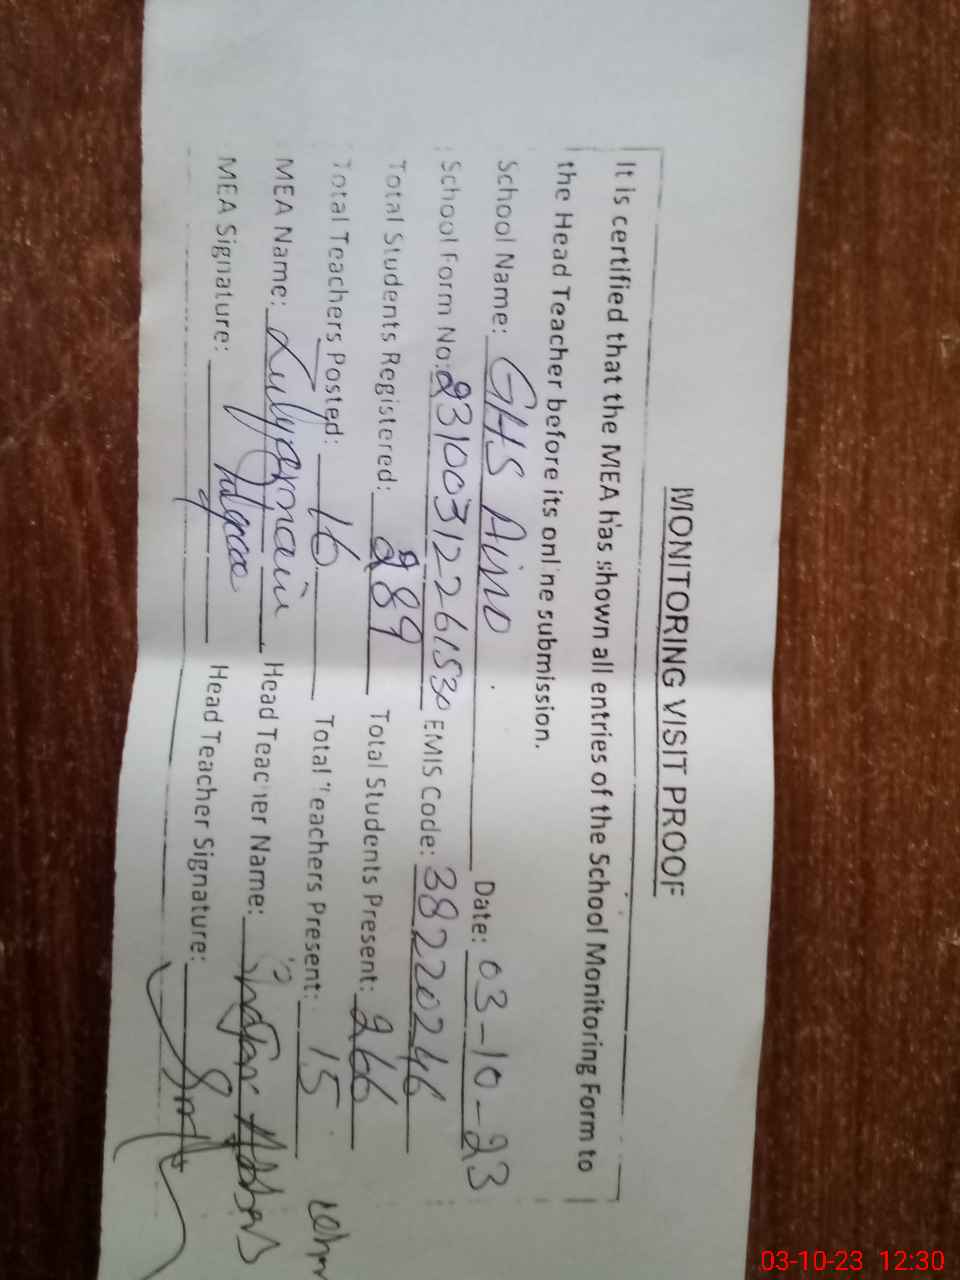 MONITORING VISIT PROOF
It is certified that the MEA has shown all entries of the School Monitoring Form to
the Head Teacher before its online submission.
School Name: GHS Aino Date: 03-10-23
School Form No: 231003122261530 EMIS Code: 38220246
Total Students Registered: 289 Total Students Present: 266
Total Teachers Posted: 16 Total Teachers Present: 15
MEA Name: Head Teacher Name: Abbas
MEA Signature: Head Teacher Signature:
03-10-23 12:30